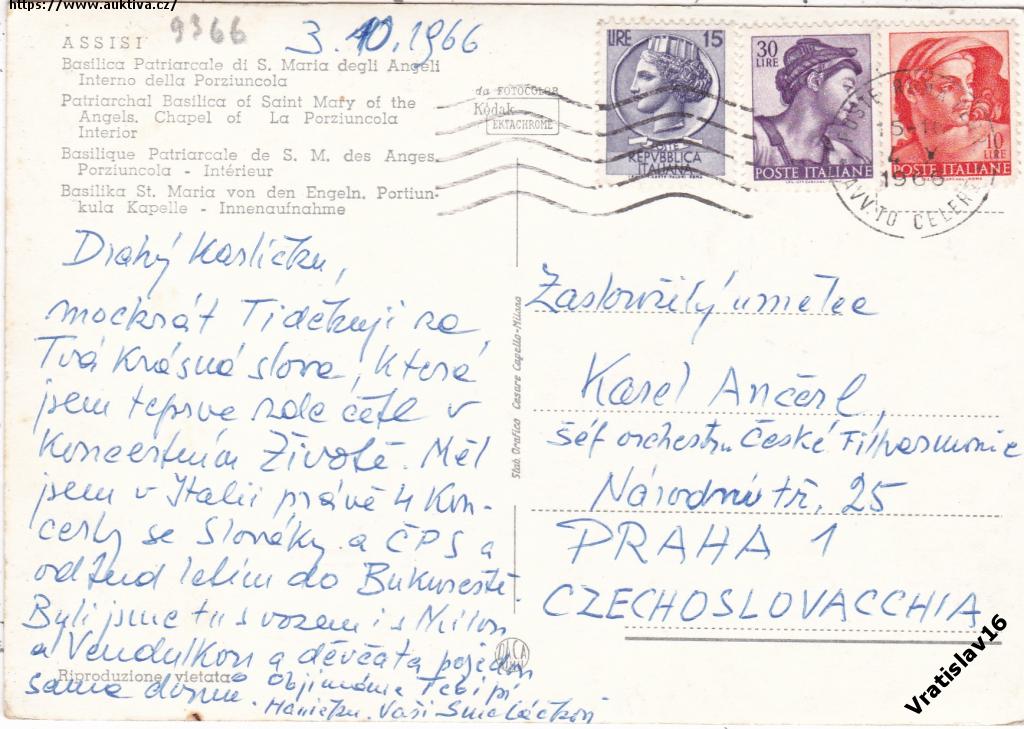 https://www.auktiva.cz/
9366
3.10.1966
ASSISI
Basilica Patriarcale di S. Maria degli Angeli
Interno della Porziuncola
Patriarchal Basilica of Saint Mary of the
Angels. Chapel of La Porziuncola
Interior
Basilique Patriarcale de S. M. des Anges
Porziuncola - Intérieur
Basilika St. Maria von den Engeln. Portiun-
kula Kapelle - Innenaufnahme
da FOTOCOLOR
Kodak
EKTACHROME
LIRE 15
REPVBBLICA
ITALIANA
30
LIRE
POSTE ITALIANE
10
LIRE
POSTE ITALIANE
1966
AVV.TO CELERE
Drahý Karlíčku,
mockrát Ti děkuji za
Tvá krásná slova, která
jsem teprve zde četl v
Koncertním Životě. Měl
jsem v Italii právě 4 kon-
certy se Slováky a ČPS a
odtud letím do Bukurešti.
Byli jsme tu s vozem i s
a Vendulkou a děvčata pojedou
sama domů. Objímáme Tebe i
Vaši Smetáčkovi
Riproduzione vietata
Stab. Grafico Cesare Capello-Milano
Zasloužilý umělec
Karel Ančerl,
šéf orchestru České Filharmonie
Národní tř. 25
PRAHA 1
CZECHOSLOVACCHIA
Vratislav16